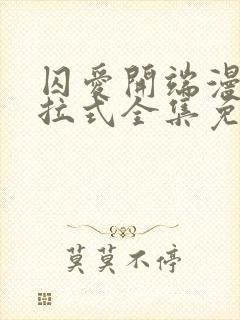 囚愛開端漫
拉式全集免
莫莫不停